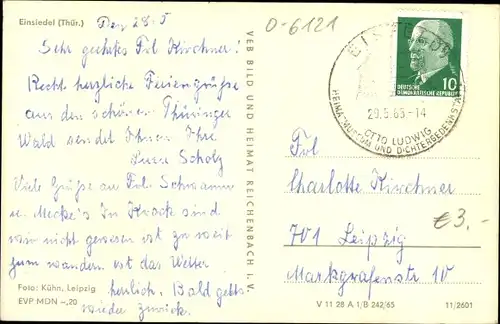 Einsiedel (Thür.)
Den 28.5
Sehr geehrtes Frl Kirchner!
Recht herzliche Feriengrüße
aus den schönen Thüringer
Wald sendet Ihnen Ihre
Scholz
Viele Grüße an Frl. Schwamm
u. Mecke's In Knock sind
wir nicht gewesen ist zu weit
zum wandern ist das Wetter
herrlich. Bald gehts
wieder zurück.
Foto: Kühn, Leipzig
EVP MDN –,20
VEB BILD UND HEIMAT REICHENBACH i. V.
O-6121
OTTO LUDWIG
HEIMATMUSEUM UND DICHTERGEDENKSTÄTTE
29.5.65-14
10
DEUTSCHE
DEMOKRATISCHE REPUBLIK
Frl
Charlotte Kirchner
701 Leipzig
Markgrafenstr 10
€3,-
V 11 28 A 1/B 242/65
11/2601